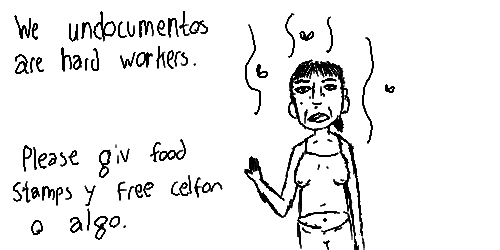 We undocumentos
are hard workers.
Please giv food
Stamps y free celfon
o algo.